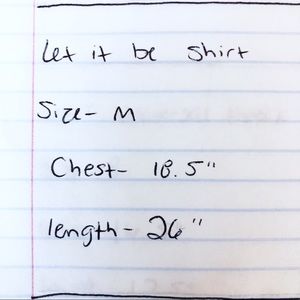 Let it be shirt
Size- M
Chest- 18.5"
length- 26"